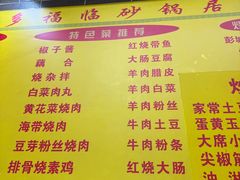 乡福临砂锅居
特色菜推荐
椒子酱 红烧带鱼
藕合 大肠豆腐
烧杂拌 羊肉腊皮
白菜肉丸 羊肉白菜
黄花菜烧肉 羊肉粉丝
海带烧肉 牛肉土豆
豆芽粉丝烧肉 牛肉粉条
排骨烧素鸡 红烧大肠
彭城
家常土豆
蛋黄玉
大席小
尖椒